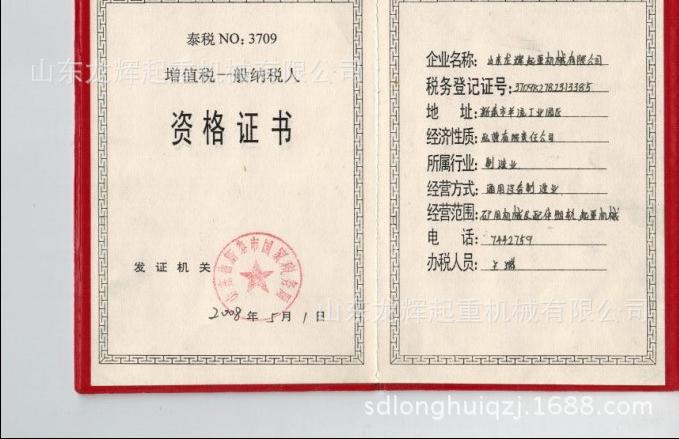 泰税 NO: 3709
增值税一般纳税人
资格证书
发证机关
山东省新泰市国家税务局
2008年5月1日
企业名称: 山东龙辉起重机械有限公司
税务登记证号: 370982782313385
地 址: 新泰市羊流工业园区
经济性质: 私营有限责任公司
所属行业: 制造业
经营方式: 通用设备制造业
经营范围: 矿用机械及配件 起重机械
电 话: 7442759
办税人员:
山东龙辉起重机械有限公司
山东龙辉起重机械有限公司
sdlonghuiqzj.1688.com